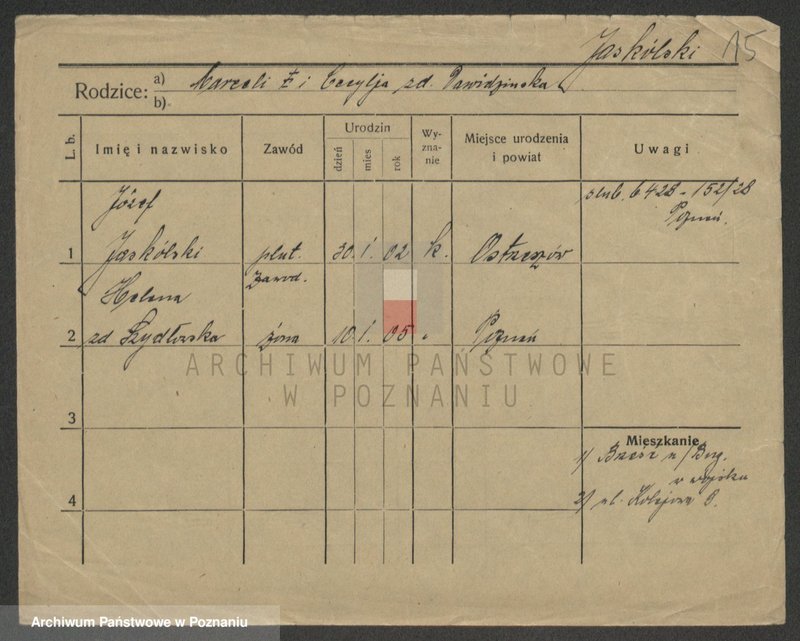 Jaskólski 15
Rodzice: a) Marceli i Cecylja zd. Dawidzinska
b)
L. b. Imię i nazwisko Zawód Urodzin dzień mies rok Wyznanie Miejsce urodzenia i powiat Uwagi
Józef ślub. 6428 - 152/28
Poznań.
1 Jaskólski plut. 30. 1. 02 k. Ostrzeszów
zawod.
Helena
2 zd Szydłowska żona 10. 1. 05 " Poznań
ARCHIWUM PAŃSTWOWE
W POZNANIU
3
Mieszkanie
1/ Brześć n/Bug.
w wojsku
4 2/ ul. Kolejowa
Archiwum Państwowe w Poznaniu